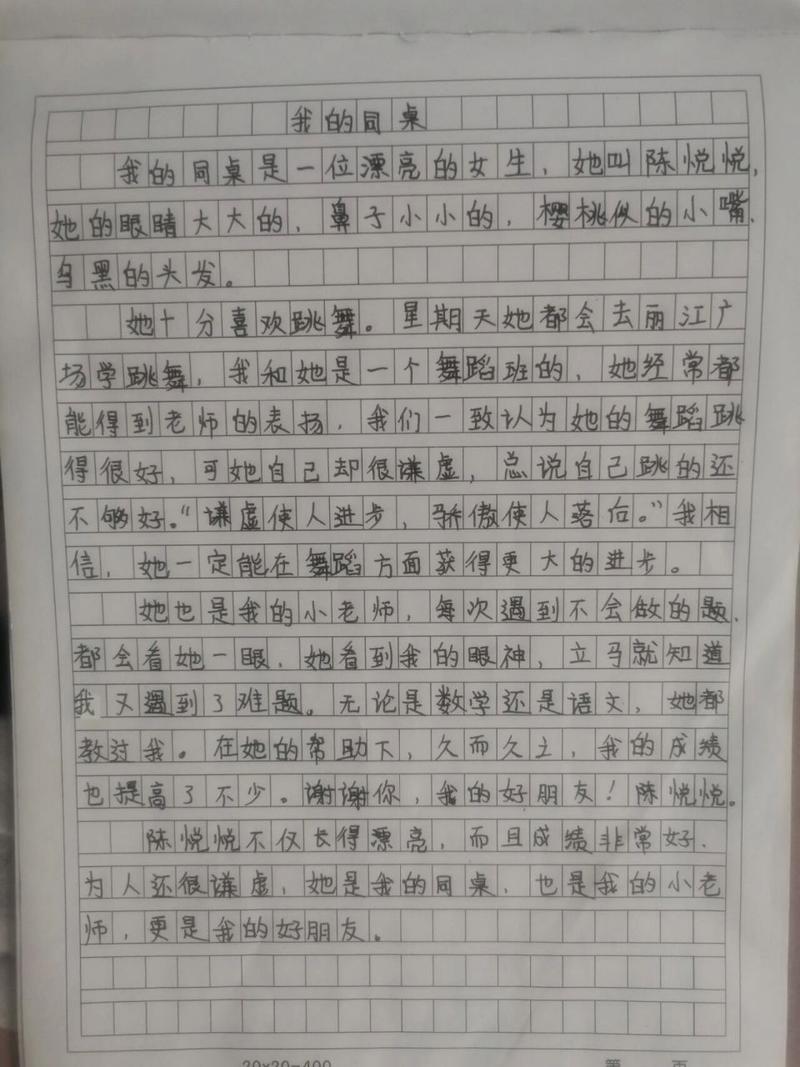 我的同桌
我的同桌是一位漂亮的女生，她叫陈悦悦，
她的眼睛大大的，鼻子小小的，樱桃似的小嘴，
乌黑的头发。
她十分喜欢跳舞。星期天她都会去丽江广
场学跳舞，我和她是一个舞蹈班的，她经常都
能得到老师的表扬，我们一致认为她的舞蹈跳
得很好，可她自己却很谦虚，总说自己跳的还
不够好。“谦虚使人进步，骄傲使人落后。”我相
信，她一定能在舞蹈方面获得更大的进步。
她也是我的小老师，每次遇到不会做的题，
都会看她一眼，她看到我的眼神，立马就知道
我又遇到了难题。无论是数学还是语文，她都
教过我。在她的帮助下，久而久之，我的成绩
也提高了不少。谢谢你，我的好朋友！陈悦悦。
陈悦悦不仅长得漂亮，而且成绩非常好，
为人还很谦虚，她是我的同桌，也是我的小老
师，更是我的好朋友。
20×20=400
第 页